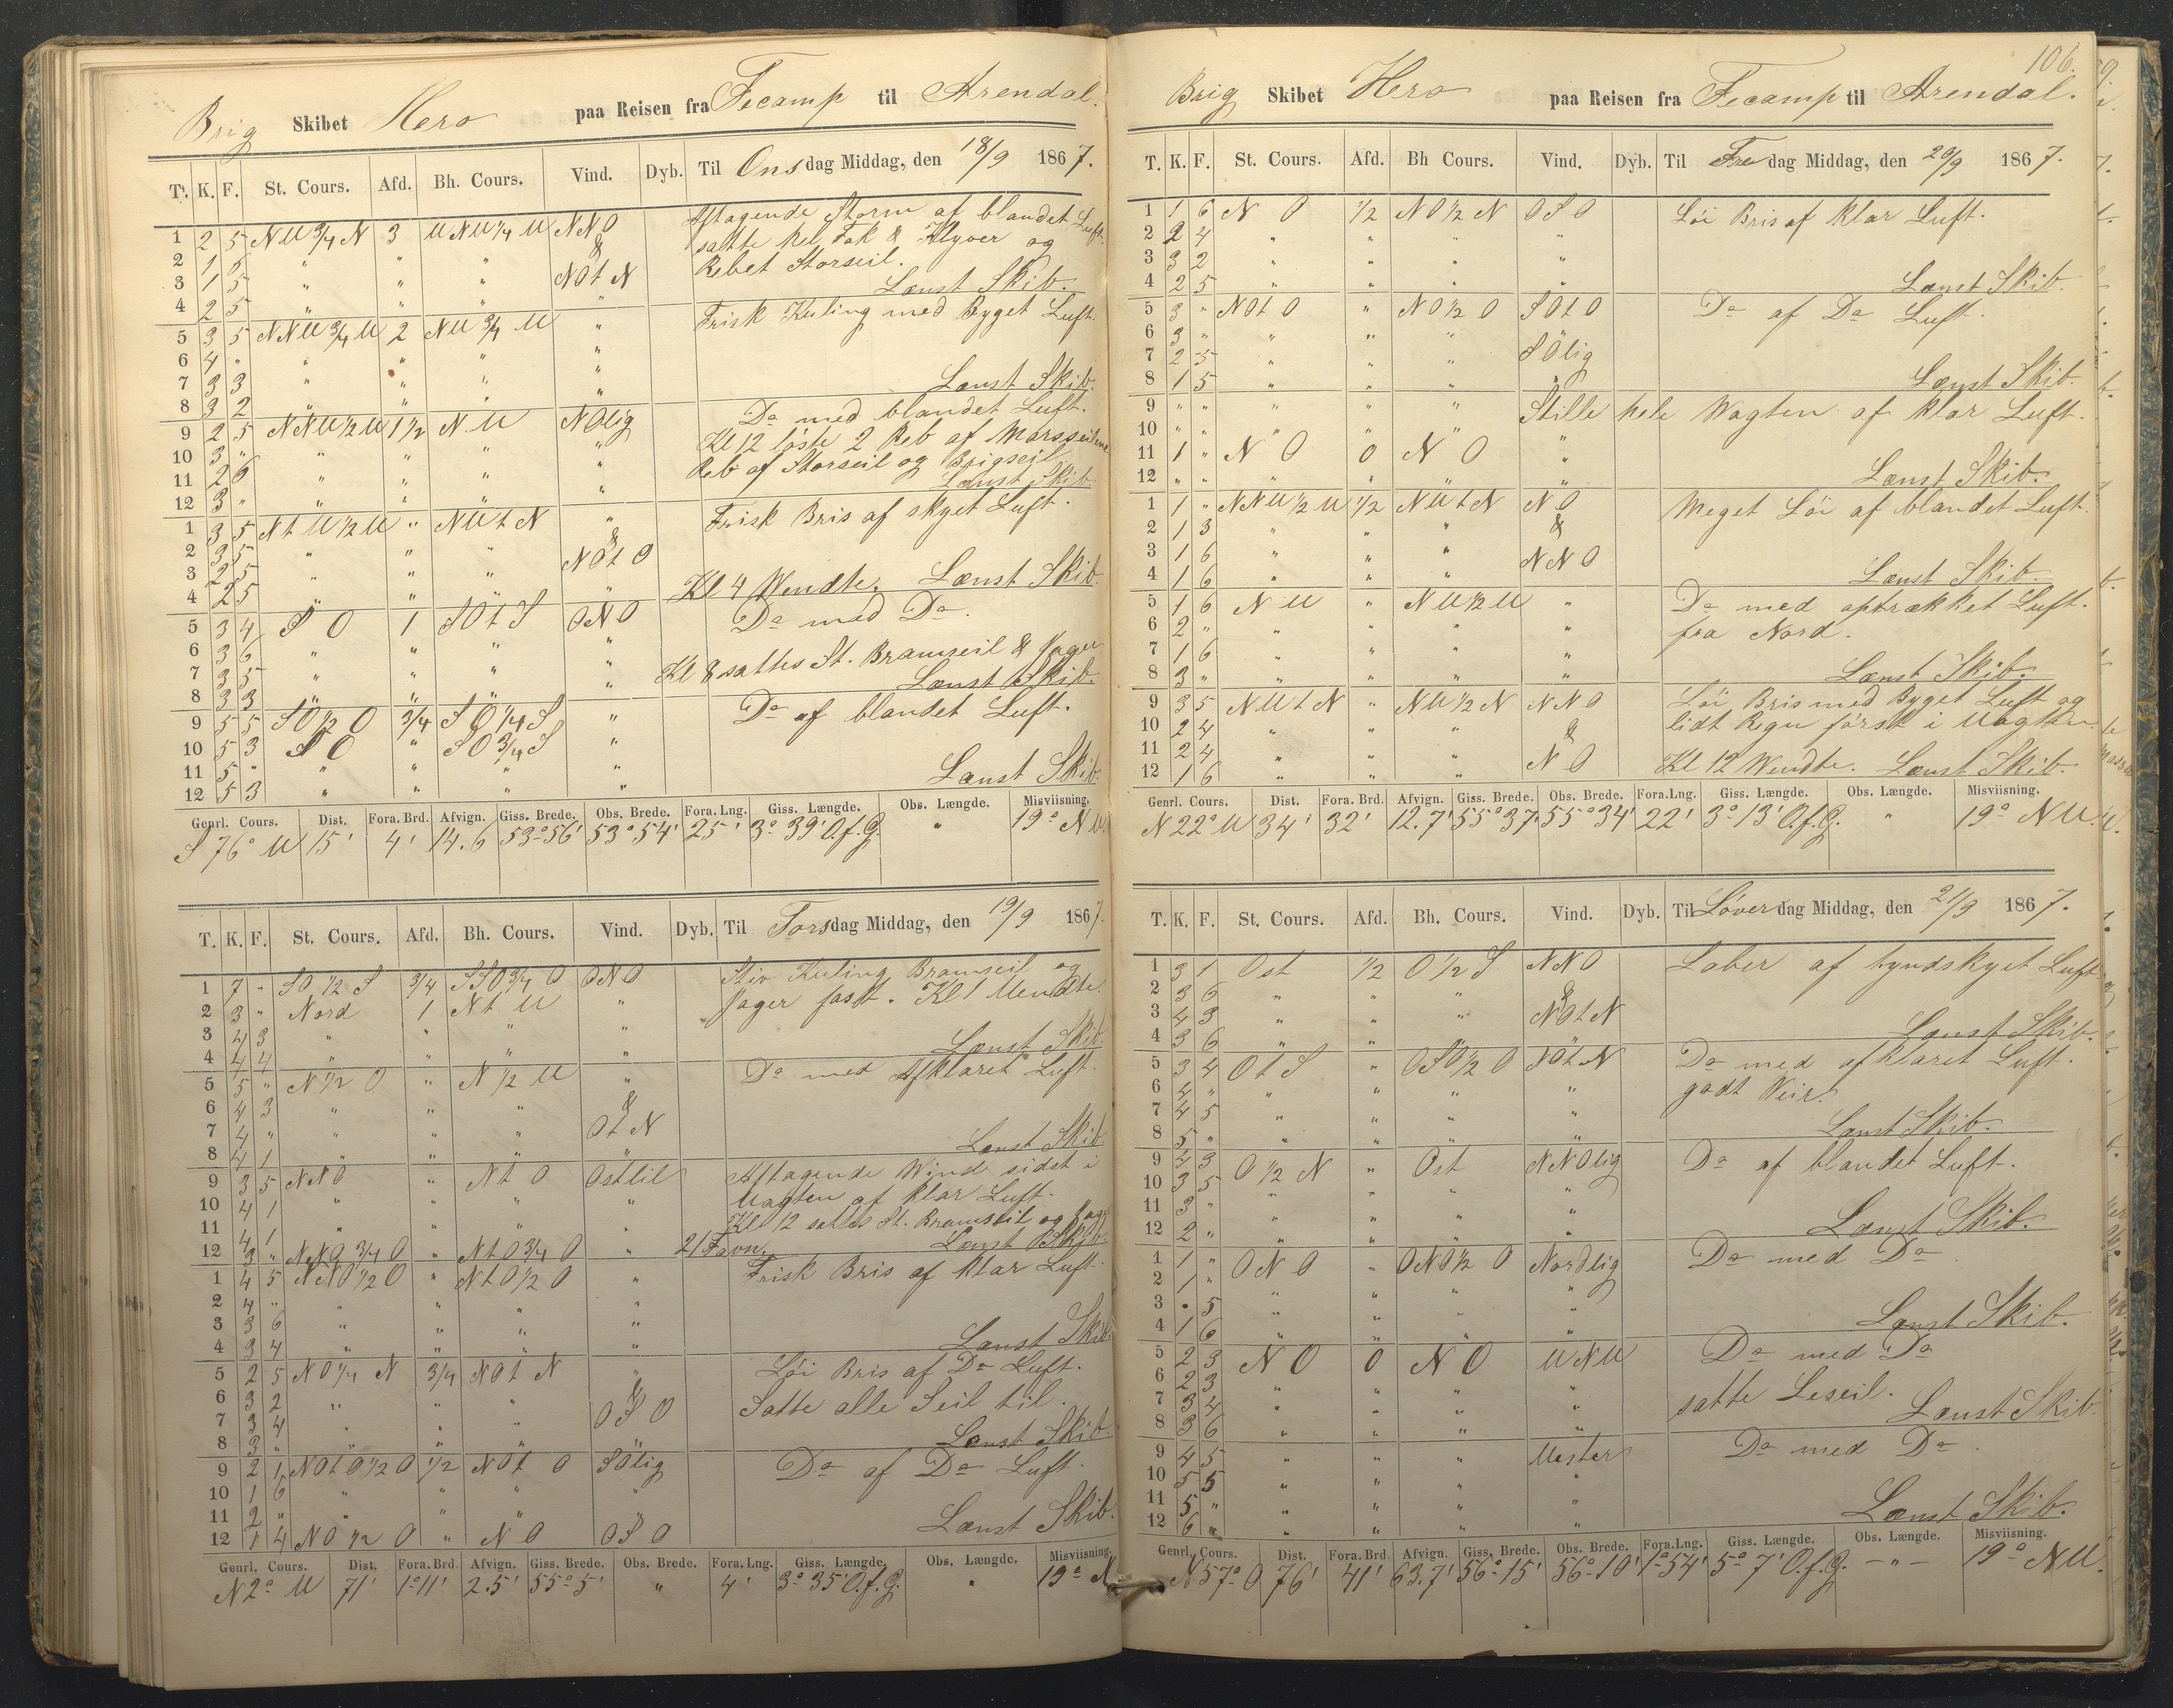 Brig Skibet Hero paa Reisen fra Fecamp til Arendal.
T. K. F. St. Cours. Afd. Bh. Cours. Vind. Dyb. Til Onsdag Middag, den 18/9 1867.
1 2 5 NW 3/4 N 3 WNW 1/4 W NNO Aftagende Storm af blandet Luft.
2 1 5 " " " & satte hel Fok & Klyver og
3 1 5 " " " NOtN Rebet Storseil.
4 2 5 " " " " Lænst Skib.
5 3 5 NNW 3/4 W 2 NW 3/4 W " Frisk Kuling med Byget Luft.
6 4 " " " " "
7 3 3 " " " "
8 3 2 " " " " Lænst Skib.
9 2 5 NNW 1/2 W 1 1/2 NW NOlig Do med blandet Luft.
10 3 " " " " " Kl 12 løste 2 Reb af Marsseilene
11 2 6 " " " " Reb af Storseil og Brigseil
12 3 " " " " " Lænst Skib
1 3 5 NtW 1/2 W " NWtN " Frisk Bris af skyet Luft.
2 3 5 " " " &
3 2 5 " " " NOtO
4 2 5 " " " " Kl 4 Wendte. Lænst Skib.
5 3 4 SO 1 SOtS ONO Do med Do.
6 3 6 " " " "
7 3 5 " " " " Kl 8 sattes St. Bramseil & Jager
8 3 3 " " " " Lænst Skib.
9 5 5 SO 1/2 O 3/4 SO 1/4 S " Do af blandet Luft.
10 5 3 SO " SO 3/4 S "
11 5 " " " " "
12 5 3 " " " " Lænst Skib.
Genrl. Cours. Dist. Fora. Brd. Afvign. Giss. Brede. Obs. Brede. Fora. Lng. Giss. Længde. Obs. Længde. Misviisning.
S 76° W 15' 4' 14.6 53°56' 53°54' 25' 3°39' O.f.G. " 19° NW
T. K. F. St. Cours. Afd. Bh. Cours. Vind. Dyb. Til Torsdag Middag, den 19/9 1867.
1 7 " SO 1/2 S 3/4 SSO 3/4 O ONO Stiv Kuling Bramseil og
2 3 " Nord 1 NtW " Jager fast. Kl 1 Wendte.
3 4 3 " " " "
4 4 4 " " " " Lænst Skib.
5 5 " N 1/2 O " N 1/2 W " Do med Afklaret Luft.
6 4 3 " " " &
7 4 " " " " OtN
8 4 1 " " " " Lænst Skib
9 3 5 NNO " NtO Østlil Aftagende Wind sidst i
10 4 1 " " " " Wagten af klar Luft.
11 4 1 " " " " Kl 12 sattes St. Bramseil og Jager
12 3 " NNO 3/4 O " NtO 3/4 O " 21 Favn. Lænst Skib.
1 4 5 NNO 1/2 O " NtO 1/2 O " Frisk Bris af klar Luft.
2 4 " " " " "
3 3 6 " " " "
4 3 4 " " " " Lænst Skib
5 2 5 NO 1/4 N 3/4 NOtN " Løi Bris af Do Luft.
6 3 2 " " " & Satte alle Seil til.
7 3 4 " " " OSO
8 3 " " " " " Lænst Skib.
9 2 1 NOtO 1/2 O 1/2 NOtO SOlig Do af Do Luft.
10 1 6 " " " "
11 2 " " " " " Lænst Skib.
12 1 4 NO 1/2 O " NO OSO
Genrl. Cours. Dist. Fora. Brd. Afvign. Giss. Brede. Obs. Brede. Fora. Lng. Giss. Længde. Obs. Længde. Misviisning.
N 2° W 71' 1°11' 2.5' 55°5' " 4' 3°35' O.f.G. " 19° N
106.
Brig Skibet Hero paa Reisen fra Fecamp til Arendal.
T. K. F. St. Cours. Afd. Bh Cours. Vind. Dyb. Til Fredag Middag, den 20/9 1867.
1 1 6 NO 1/2 NO 1/2 N OSO Løi Bris af klar Luft.
2 2 4 " " " "
3 3 2 " " " "
4 2 5 " " " " Lænst Skib.
5 3 " NOtO " NO 1/2 O SOtO Do af Do Luft.
6 3 " " " " "
7 2 5 " " " SOlig
8 1 5 " " " " Lænst Skib.
9 " " " " " Stille hele Wagten af klar Luft.
10 " " " " " "
11 1 " NO 0 NO "
12 " " " " " " Lænst Skib.
1 1 " NNW 1/2 W 1/2 NWtN NO Meget Løi af blandet Luft.
2 1 3 " " " &
3 1 6 " " " NNO
4 1 6 " " " " Lænst Skib.
5 1 6 NW " NW 1/2 W " Do med optrækket Luft.
6 2 " " " " " fra Nord.
7 1 6 " " " "
8 3 " " " " " Lænst Skib.
9 3 5 NWtN " NW 1/2 N NNO Løi Bris med Byget Luft og
10 2 4 " " " & lidt Regn først i Wagten.
11 2 4 " " " NO
12 1 6 " " " Kl 12 Wendte. Lænst Skib.
Genrl. Cours. Dist. Fora. Brd. Afvign. Giss. Brede. Obs. Brede. Fora. Lng. Giss. Længde. Obs. Længde. Misviisning.
N 22° W 34' 32' 12.7' 55°37' 55°34' 22' 3°13' O.f.G. " 19° NW.
T. K. F. St. Cours. Afd. Bh. Cours. Vind. Dyb. Til Løverdag Middag, den 21/9 1867.
1 3 1 Ost 1/2 O 1/2 S NNO Laber af tyndskyet Luft
2 3 6 " " " &
3 4 3 " " " NOtN
4 3 6 " " " " Lænst Skib.
5 3 4 OtS " OSO 1/2 O NOtN Do med afklaret Luft.
6 4 " " " " " godt Veir.
7 4 5 " " " "
8 5 " " " " " Lænst Skib.
9 4 3 O 1/2 N " Ost NNOlig Do af blandet Luft.
10 3 5 " " " "
11 3 " " " " "
12 2 " " " " " Lænst Skib.
1 1 " ONO " ONO 1/2 O Nordlig Do med Do.
2 1 " " " " "
3 " 5 " " " "
4 1 6 " " " " Lænst Skib.
5 2 3 NO 0 NO WNW Do med Do
6 2 3 " " " " satte Leseil.
7 3 4 " " " "
8 3 6 " " " " Lænst Skib
9 4 5 " " " Vester Do med Do.
10 5 5 " " " "
11 5 " " " " "
12 6 " " " " Lænst Skib.
Genrl. Cours. Dist. Fora. Brd. Afvign. Giss. Brede. Obs. Brede. Fora. Lng. Giss. Længde. Obs. Længde. Misviisning.
N 57° O 76' 41' 63.7' 56°15' 56°10' 1°54' 5°7' O.f.G. -"- 19° NW.